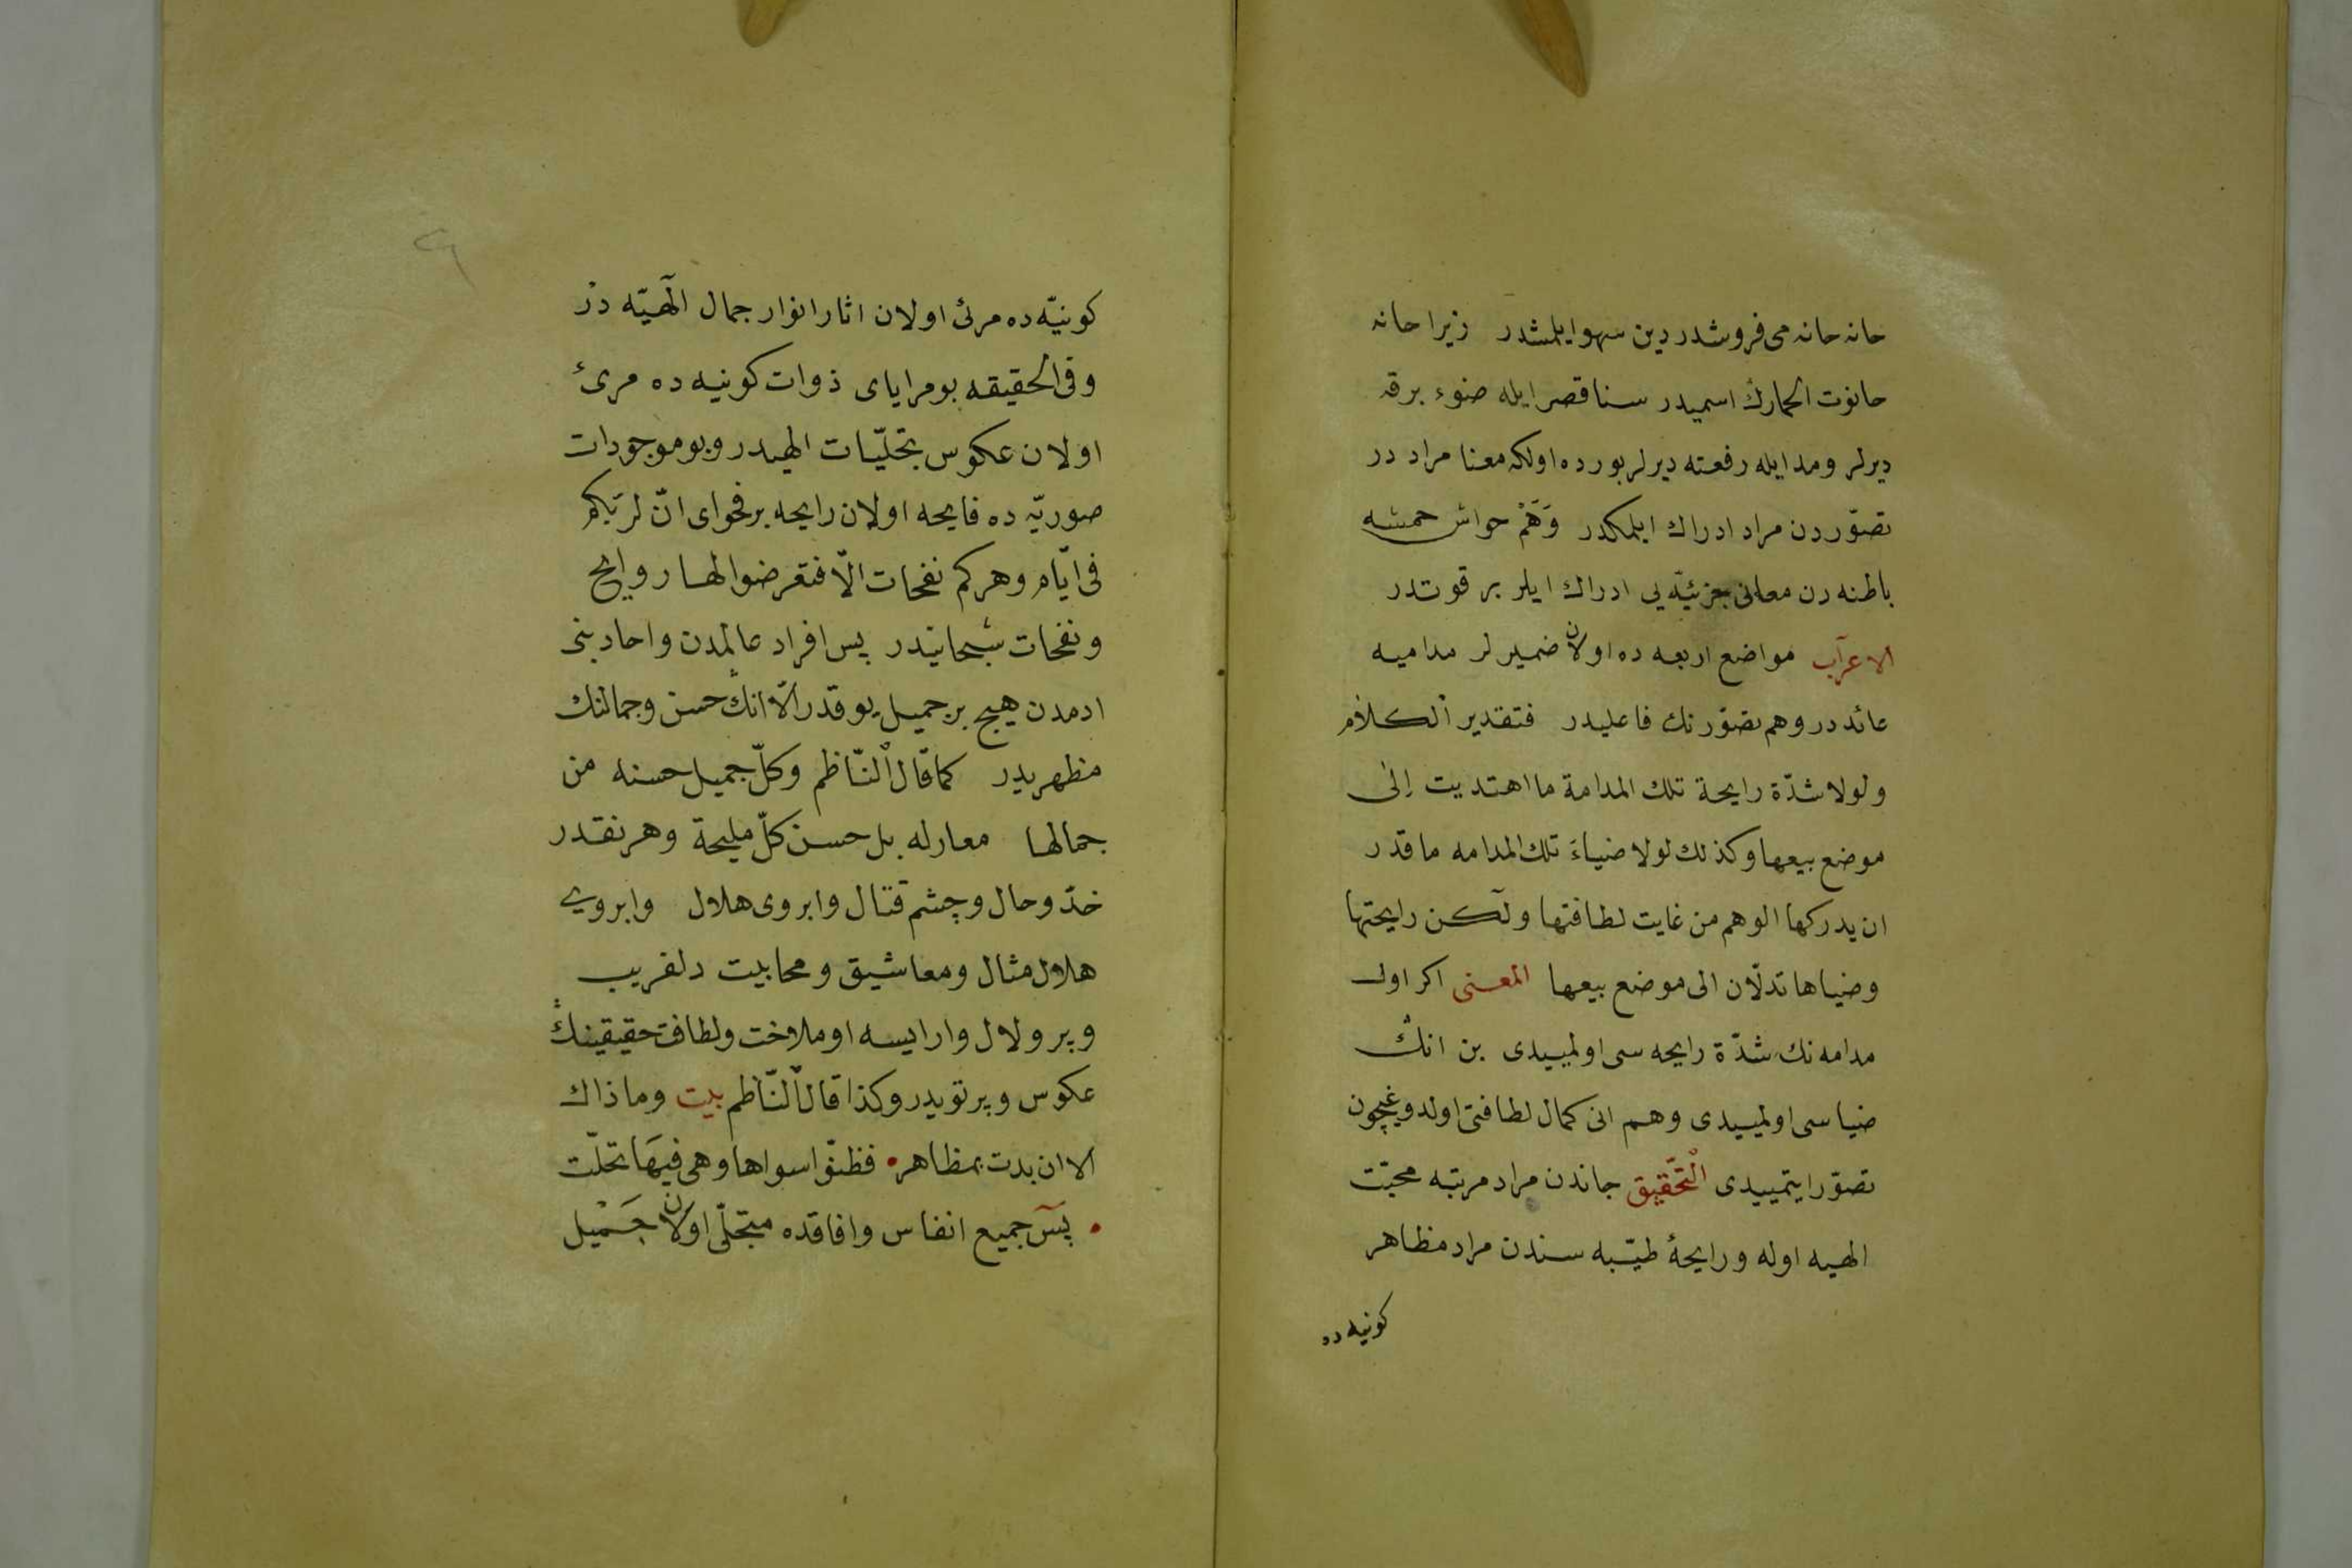 حانه حانه می فروشدر دین سهو ایلمشدر زیرا حانه
حانوت الخمارك اسمیدر سنا قصر ایله ضوء برقه
دیرلر ومد ایله رفعته دیرلر بورده اولکه معنا مراد در
تصوّردن مراد ادراك ایلمكدر وَهَمْ حواسّ خمسه
باطنه دن معانی جزئیّه یی ادراك ایلر بر قوتدر
الاعراب مواضع اربعه ده اولان ضمیرلر مدامیه
عائددر وهم تصوّرنك فاعلیدر فتقدیر الكلام
ولولا شدّة رایحة تلك المدامة ما اهتدیت إلی
موضع بیعها وكذلك لولا ضیاءَ تلك المدامه ما قدر
ان یدركها الوهم من غایت لطافتها ولكن رایحتها
وضیاها تدلّان الی موضع بیعها المعنی اكر اول
مدامه نك شدّة رایحه سی اولمییدی بن انك
ضیاسی اولمییدی وهم انی كمال لطافتی اولدوغیچون
تصوّر ایتمییدی التّحقیق جاندن مراد مرتبه محبّت
الهیه اوله ورایحهٔ طیّبه سندن مراد مظاهر
كونیه ده
كونیّه ده مرئ اولان اثار انوار جمال الهیّه در
وفی الحقیقه بو مرایای ذوات كونیه ده مرئ
اولان عكوس تجلیّات الهیدر وبو موجودات
صوریّه ده فایحه اولان رایحه بر فحوای انّ لربّكم
فی ایّام دهركم نفحات الّا فتعرضوا لها روایح
ونفحات سبحانیدر پس افراد عالمدن واحاد بنی
ادمدن هیچ بر جمیل یوقدر الّا انك حسن وجمالنك
مظهریدر كما قال النّاظم وكلّ جمیل حسنه من
جمالها معار له بل حسن كلّ ملیحة وهر نقدر
خدّ وحال وچشم قتال وابروی هلال وابروی
هلال مثال ومعاشیق ومحابیت دلفریب
وپر ولال وار ایسه او ملاخت ولطافت حقیقینك
عكوس وپرتویدر وكذا قال النّاظم بیت وما ذاك
الا ان بدت بمظاهر • فظنّوا سواها وهی فیهَا تجلّت
• پس جمیع انفاس وافاقده متجلّی اولان جَمیل